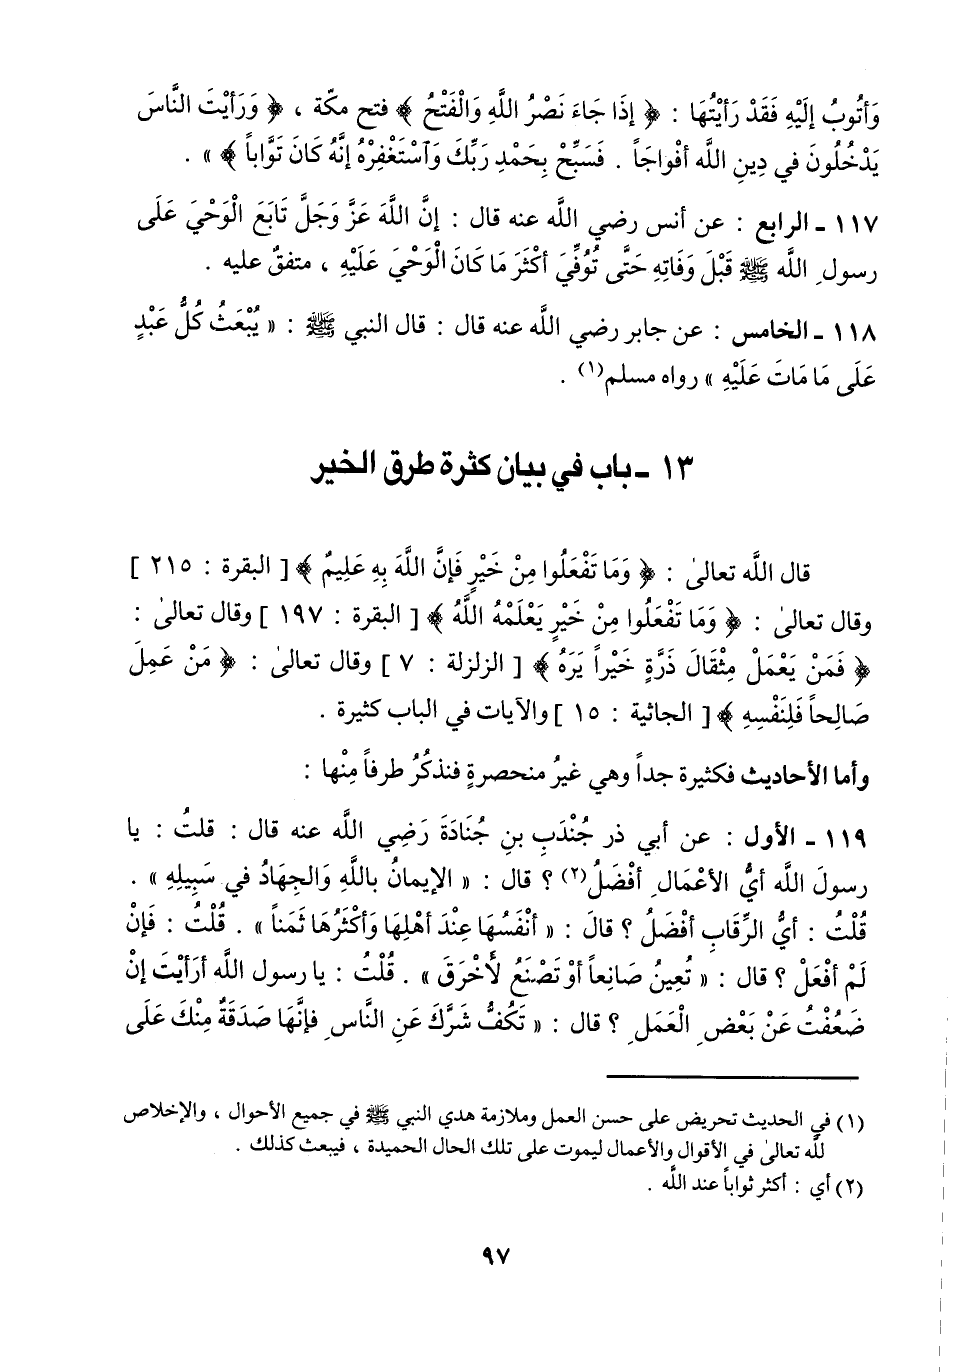 وَأَتُوبُ إِلَيْهِ فَقَدْ رَأَيْتُهَا : ﴿ إِذَا جَاءَ نَصْرُ اللَّهِ وَالْفَتْحُ ﴾ فتح مكّة ، ﴿ وَرَأَيْتَ النَّاسَ
يَدْخُلُونَ في دِينِ اللَّه أفْوَاجَاً . فَسَبِّحْ بِحَمْدِ رَبِّكَ وَٱسْتَغْفِرْهُ إنَّهُ كَانَ تَوَّاباً ﴾ » .
١١٧ ـ الرابع : عن أنس رضي اللَّه عنه قال : إنَّ اللَّهَ عَزَّ وَجَلَّ تَابَعَ الْوَحْيَ عَلَى
رسولِ اللَّه ﷺ قَبْلَ وَفَاتِهِ حَتَّى تُوُفِّيَ أكْثَرَ مَا كَانَ الْوَحْيَ عَلَيْهِ ، متفقٌ عليه .
١١٨ ـ الخامس : عن جابر رضي اللَّه عنه قال : قال النبي ﷺ : « يُبْعَثُ كُلُّ عَبْدٍ
عَلَى مَا مَاتَ عَلَيْهِ » رواه مسلم(١) .
١٣ ـ باب في بيان كثرة طرق الخير
قال اللَّه تعالىٰ : ﴿ وَمَا تَفْعَلُوا مِنْ خَيْرٍ فَإنَّ اللَّهَ بِهِ عَلِيمٌ ﴾ [ البقرة : ٢١٥ ]
وقال تعالىٰ : ﴿ وَمَا تَفْعَلُوا مِنْ خَيْرٍ يَعْلَمْهُ اللَّهُ ﴾ [ البقرة : ١٩٧ ] وقال تعالىٰ :
﴿ فَمَنْ يَعْمَلْ مِثْقَالَ ذَرَّةٍ خَيْراً يَرَهُ ﴾ [ الزلزلة : ٧ ] وقال تعالىٰ : ﴿ مَنْ عَمِلَ
صَالِحاً فَلِنَفْسِهِ ﴾ [ الجاثية : ١٥ ] والآيات في الباب كثيرة .
وأما الأحاديث فكثيرة جداً وهي غيرُ منحصرةٍ فنذكُرُ طرفاً مِنْها :
١١٩ ـ الأول : عن أبي ذر جُنْدَبِ بنِ جُنَادَةَ رَضِي اللَّه عنه قال : قلتُ : يا
رسولَ اللَّه أيُّ الأعْمَالِ أفْضَلُ(٢) ؟ قال : « الإيمانُ باللَّهِ وَالجِهَادُ في سَبِيلِهِ » .
قُلْتُ : أيُّ الرِّقَابِ أفْضَلُ ؟ قالَ : « أنْفَسُهَا عِنْدَ أهْلِهَا وَأكْثَرُهَا ثَمَناً » . قُلْتُ : فَإنْ
لَمْ أفْعَلْ ؟ قال : « تُعِينُ صَانِعاً أوْ تَصْنَعُ لأَخْرَقَ » . قُلْتُ : يا رسول اللَّه أرَأيْتَ إنْ
ضَعُفْتُ عَنْ بَعْضِ الْعَمَلِ ؟ قال : « تَكُفُّ شَرَّكَ عَنِ النَّاسِ فإنَّهَا صَدَقَةٌ مِنْكَ عَلَى
(١) في الحديث تحريض على حسن العمل وملازمة هدي النبي ﷺ في جميع الأحوال ، والإخلاص
للَّه تعالىٰ في الأقوال والأعمال ليموت على تلك الحال الحميدة ، فيبعث كذلك .
(٢) أي : أكثر ثواباً عند اللَّه .
٩٧